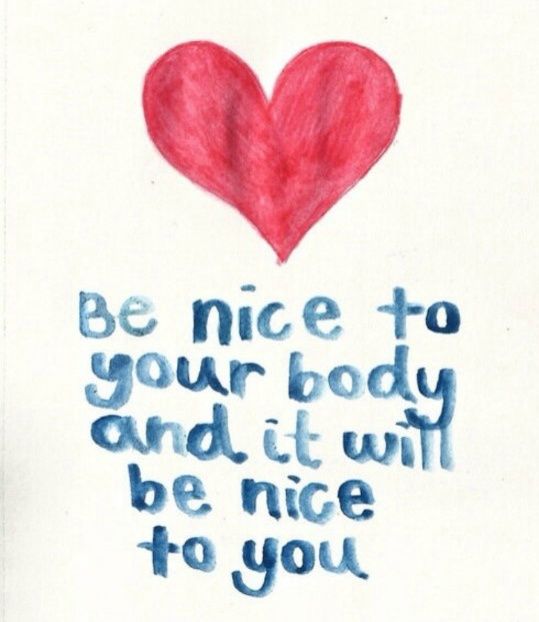 Be nice to
your body
and it will
be nice
to you